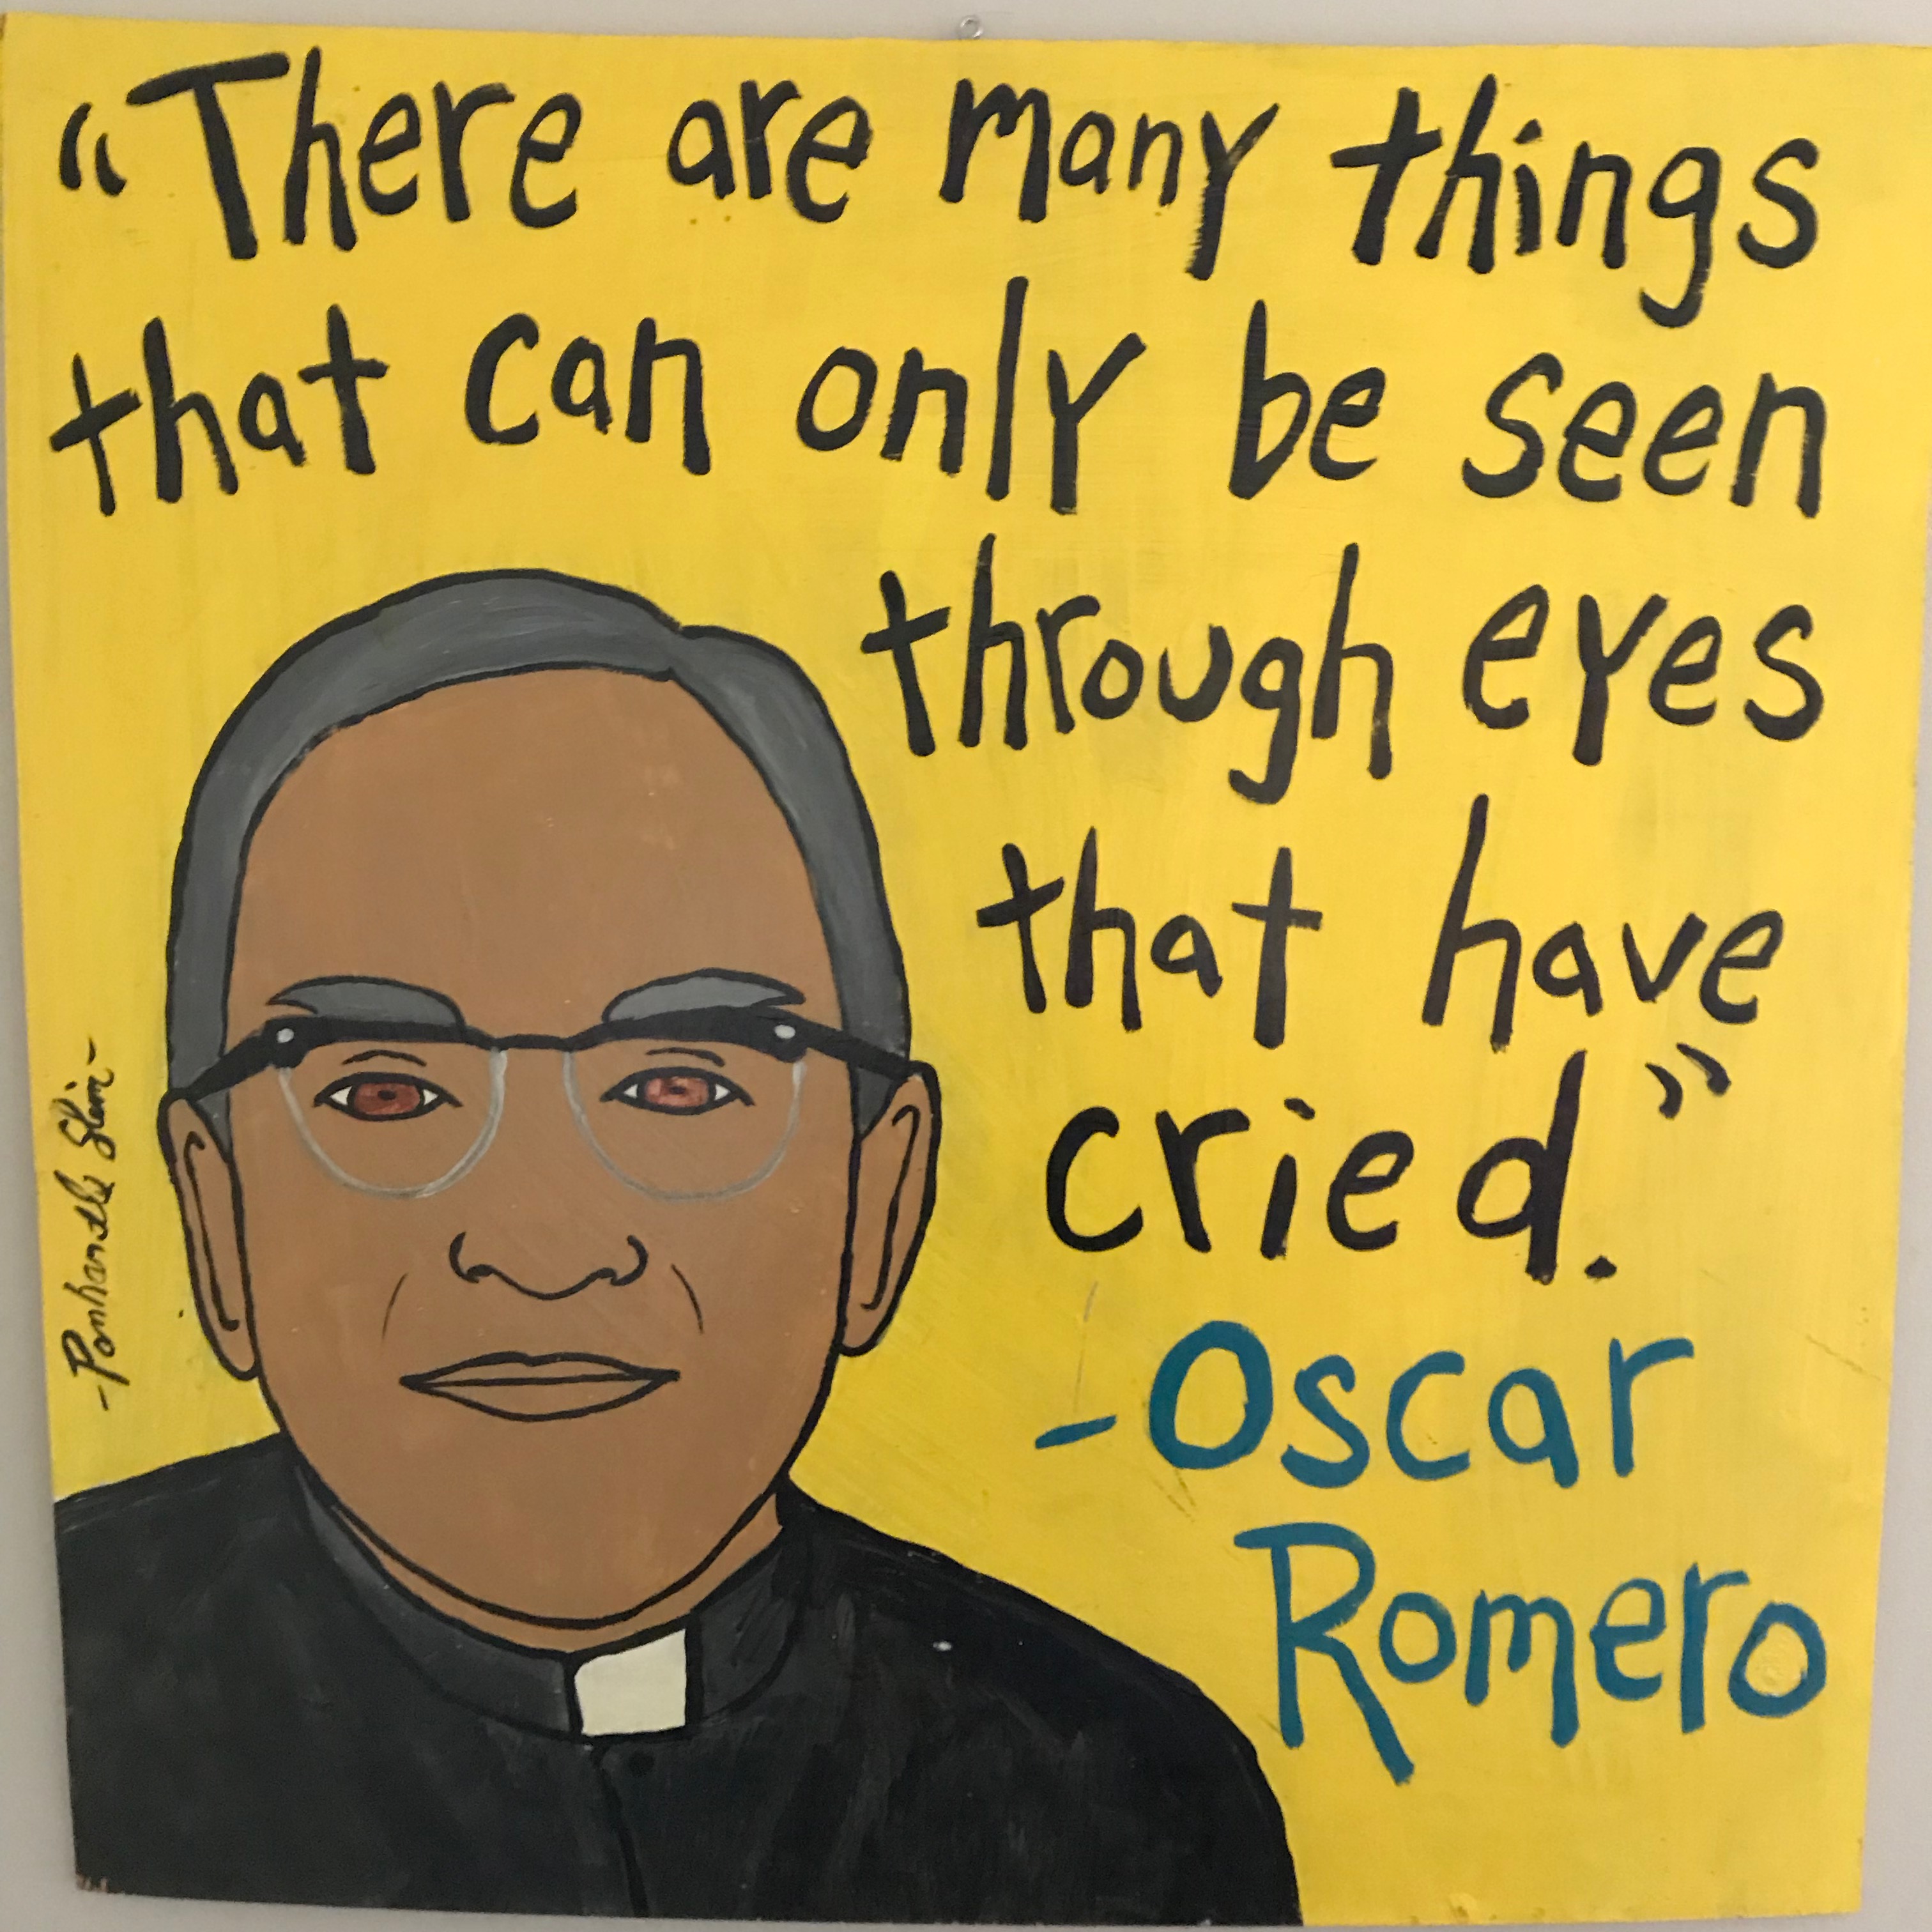 “There are many things
that can only be seen
through eyes
that have
cried.”
-Oscar
Romero
-Panhandle Slim-